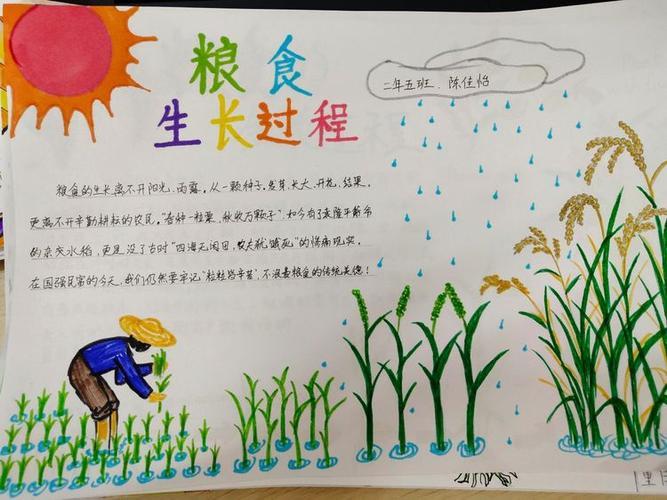 粮食
生长过程
二年五班. 陈佳怡
粮食的生长离不开阳光、雨露。从一颗种子、发芽、长大、开花、结果。
更离不开辛勤耕耘的农民。"春种一粒粟，秋收万颗子"如今有了袁隆平爷爷
的杂交水稻，更是没了古时"四海无闲田，农夫犹饿死"的悄痛现实。
在国强民富的今天，我们仍然要牢记"粒粒皆辛苦"，不浪费粮食的传统美德！
里